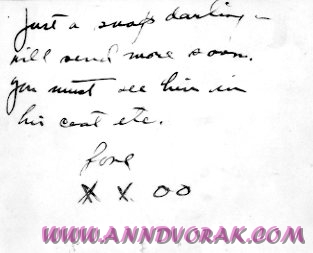 Just a snap darling –
will send more soon.
you must see him in
his coat etc.
Love
X X OO
WWW.ANNDVORAK.COM